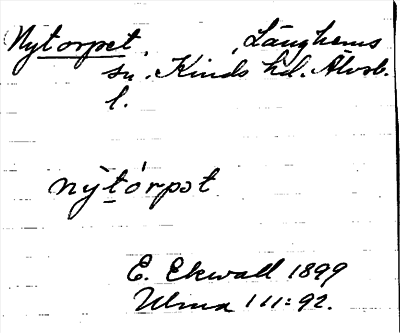 Nytorpet, Länghems
sn. Kinds hd. Älvsb.
l.
nỳtórpət
E. Ekwall 1899
Ulma 111:92.